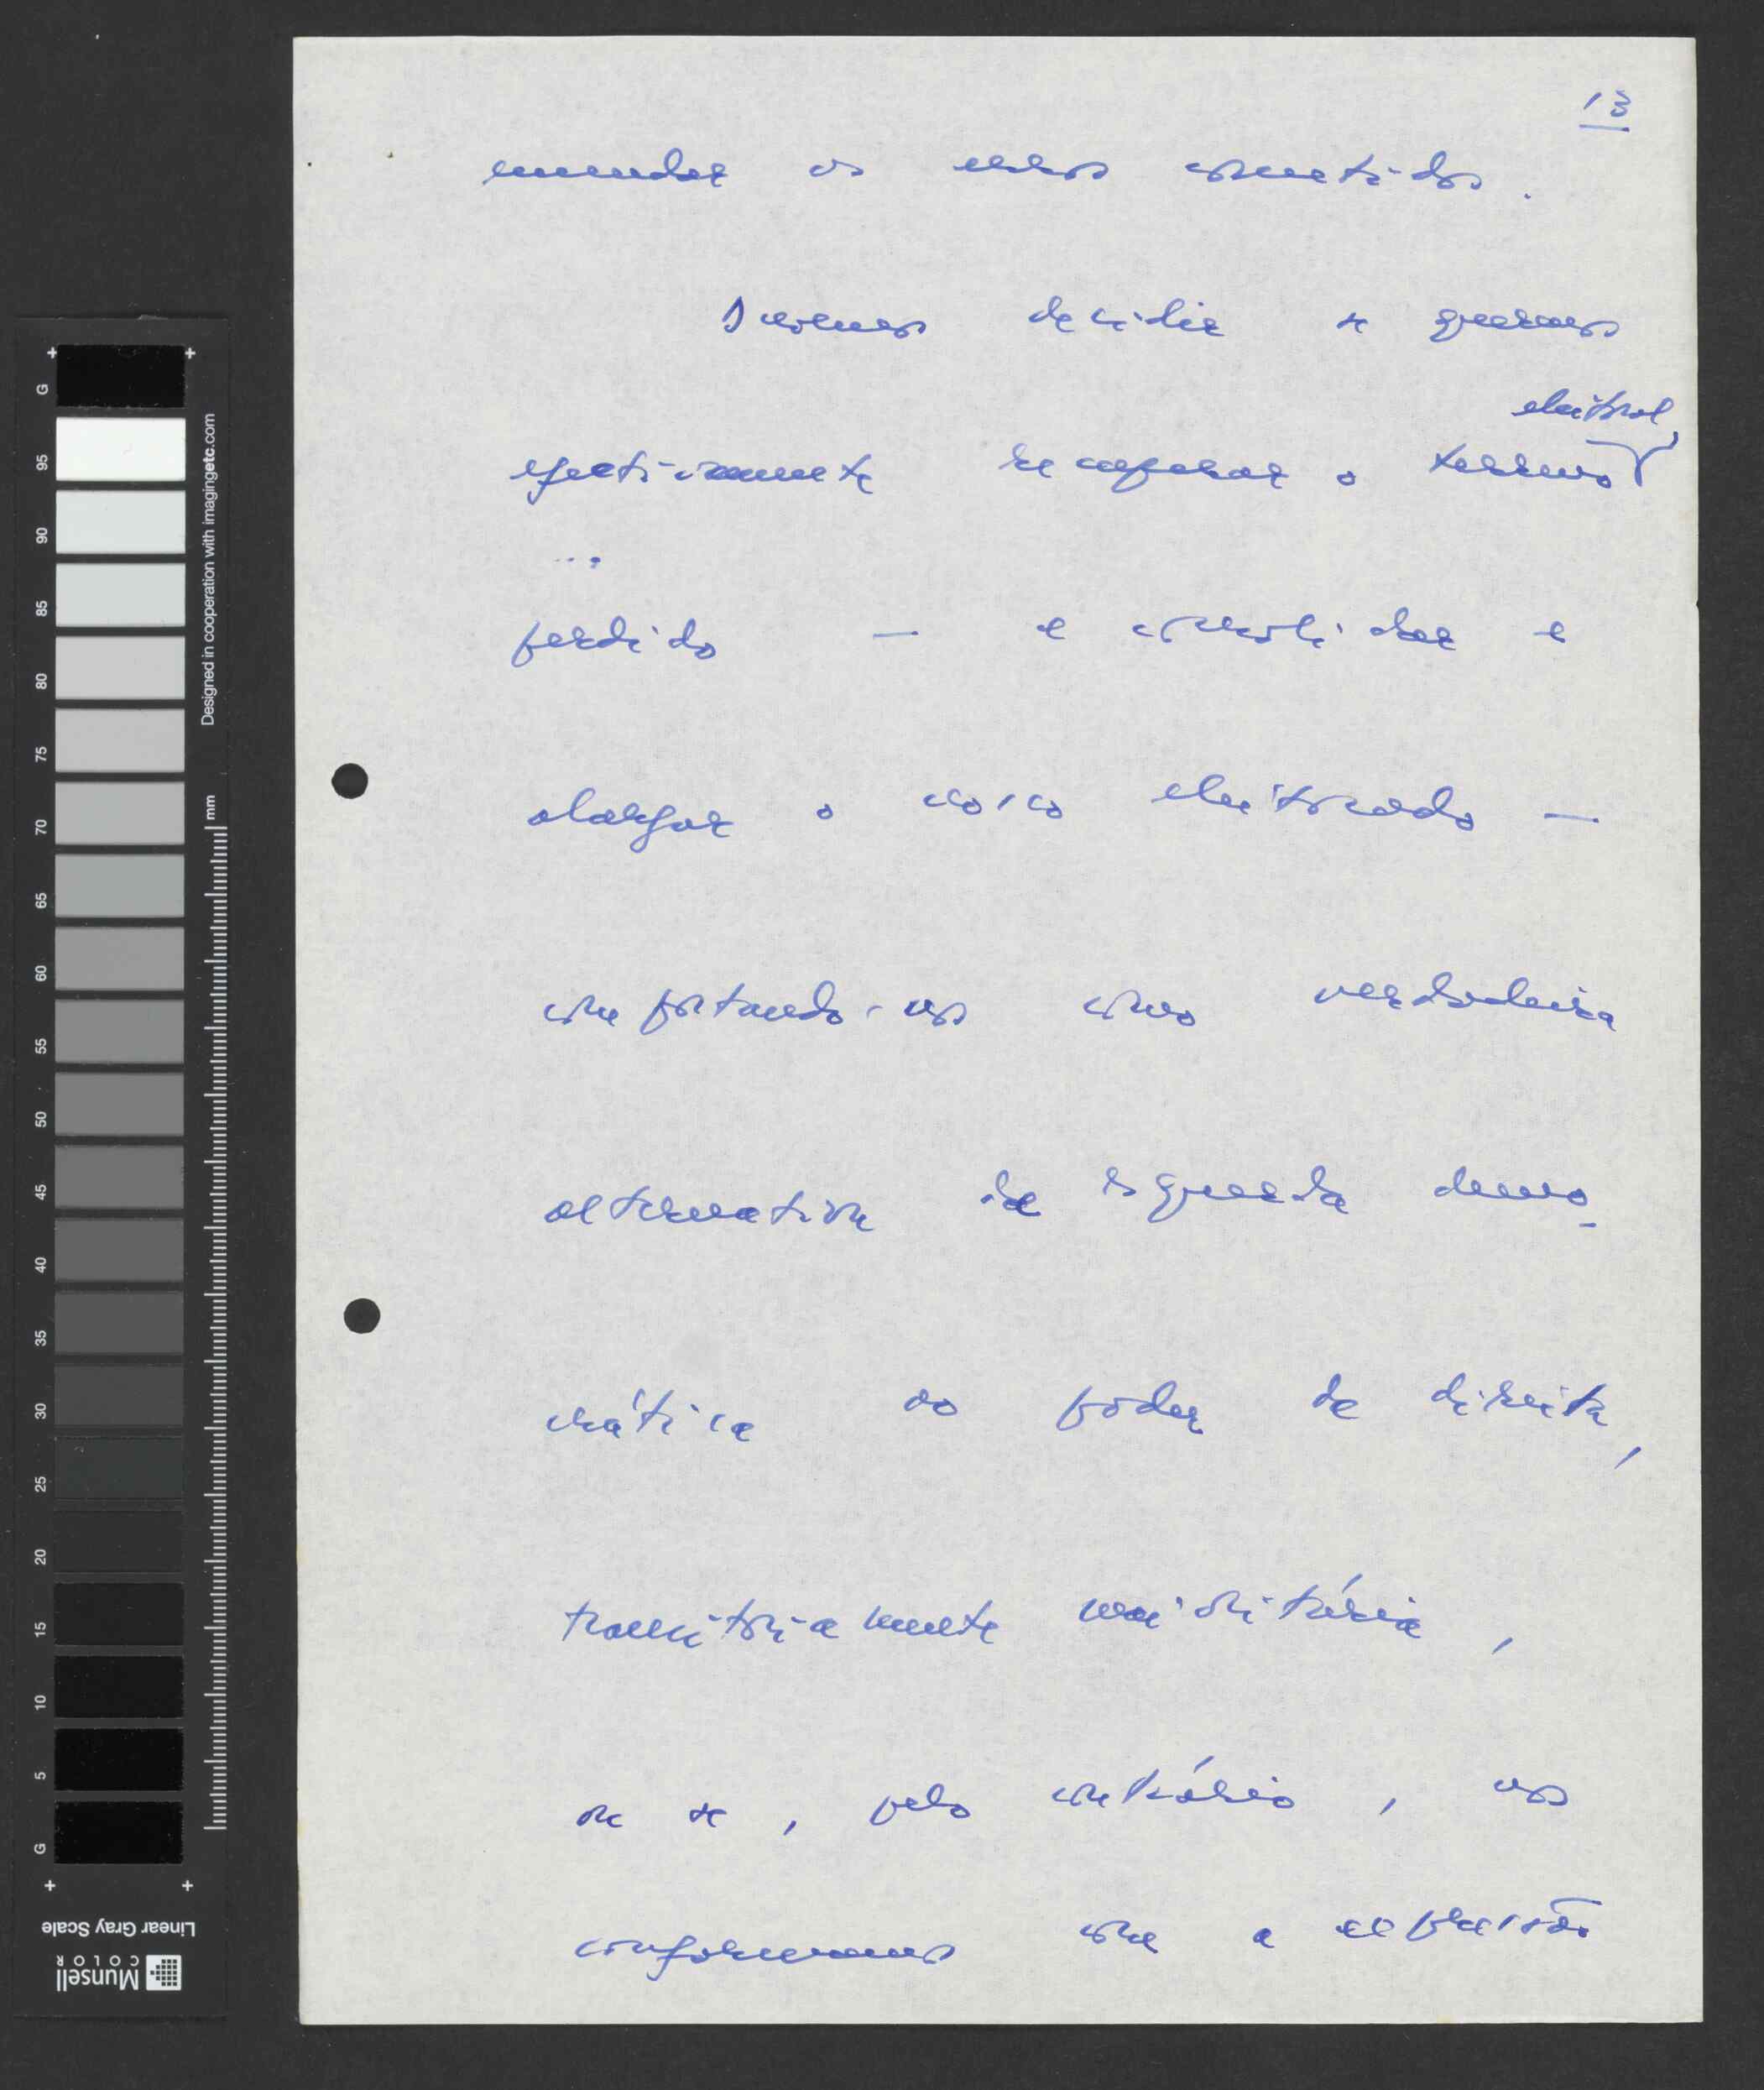 13
emendar os erros cometidos.
Devemos decidir se queremos
eleitoral,
efectivamente recuperar o terreno
perdido — e consolidar e
alargar o nosso eleitorado —
comportando-nos como verdadeira
alternativa de esquerda demo-
crática ao poder de direita,
transitoriamente maioritária,
ou se, pelo contrário, nos
conformamos com a expressão
G
95
90
85
80
75
70
65
60
55
50
45
40
35
30
25
20
15
10
5
G
Designed in cooperation with imagingetc.com
mm
Linear Gray Scale
Munsell
COLOR